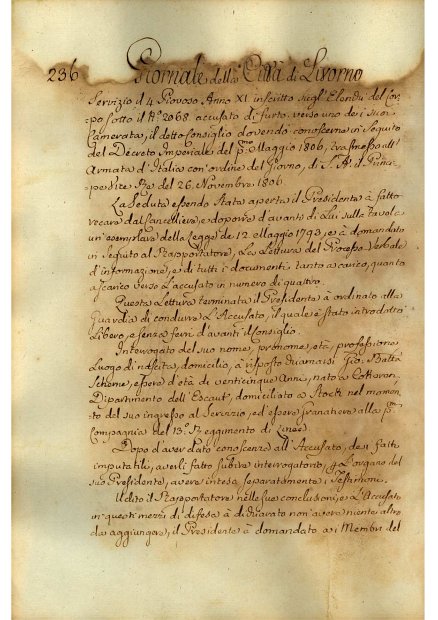 236 Giornale della Città di Livorno
Servizio il 4 Piovoso Anno XI inscritto negl' Elenchi del Cor
po sotto il N.º 2068 accusato di furto verso uno de i suoi
Camerata, il detto Consiglio dovendo conoscerne in seguito
del Decreto Imperiale del p.mo Maggio 1806, trasmesso all'
Armata d'Italia con ordine del Giorno, di S. A. il Princi
pe Vice Re del 26. Novembre 1806.
La Seduta essendo Stata aperta il Presidente à fatto
recare dal Cancelliere e deporre d'avanti di Lui sulla Tavola
un' esemplare della Legge de 12. Maggio 1793, e à domandato
in seguito al Rapportatore, La Lettura del Processo Verbale
d'informazione, e di tutti i documenti tanto a carico, quanto
a scarico verso L'accusato in numero di quattro.
Questa Lettura terminata il Presidente à ordinato alla
Guardia di condurre L'Accusato, il quale è stato introdotto
Libero, e senza ferri d'avanti il Consiglio.
Interrogato del suo nome, prenome, età, professione
Luogo di nascita, domicilio, à risposto chiamarsi Gio. Batta
essere d'età di venticinque Anni, nato a
Dipartimento dell' Escaut, domiciliato a Stock nel momen
to del suo ingresso al Servizio, ed essere granatiere alla p.ma
Compagnia del 13.º Reggimento di Linea
Dopo d'aver dato conoscenza all' Accusato, dei fatti
imputatili, averli fatto subire interrogatorio, p. l'organo del
suo Presidente, avere intesa separatamente i Testimoni.
Udito il Rapportatore nelle sue conclusioni, e L'Accusato
in questi mezzi di difesa à dichiarato non avere niente altro
da aggiungere, il Presidente à domandato a i Membri del